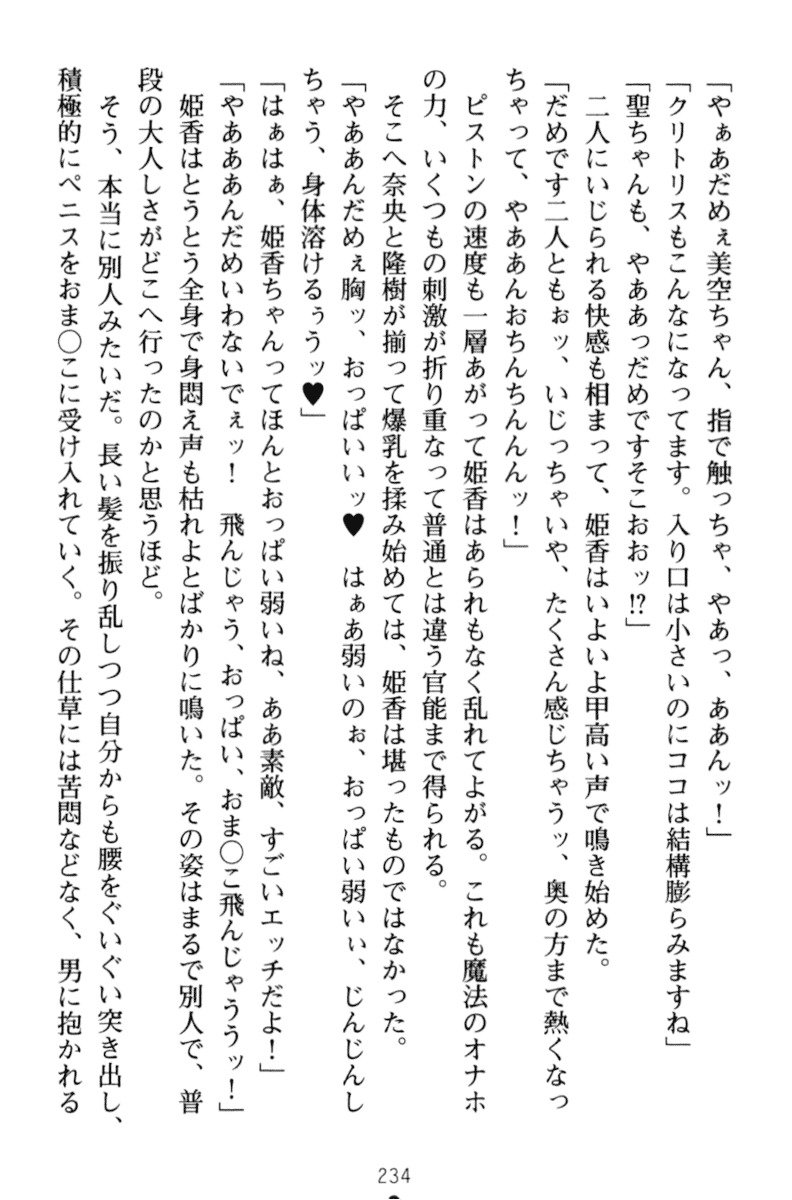 「やぁあだめぇ美空ちゃん、指で触っちゃ、やあっ、ああんッ！」
「クリトリスもこんなになってます。入り口は小さいのにココは結構膨らみますね」
「聖ちゃんも、やああっだめですそこおおッ!?」
二人にいじられる快感も相まって、姫香はいよいよ甲高い声で鳴き始めた。
「だめです二人ともぉッ、いじっちゃいや、たくさん感じちゃうッ、奥の方まで熱くなっ
ちゃって、やああんおちんちんんんッ！」
ピストンの速度も一層あがって姫香はあられもなく乱れてよがる。これも魔法のオナホ
の力、いくつもの刺激が折り重なって普通とは違う官能まで得られる。
そこへ奈央と隆樹が揃って爆乳を揉み始めては、姫香は堪ったものではなかった。
「やああんだめぇ胸ッ、おっぱいいッ♥　はぁあ弱いのぉ、おっぱい弱いぃ、じんじんし
ちゃう、身体溶けるぅうッ♥」
「はぁはぁ、姫香ちゃんってほんとおっぱい弱いね、ああ素敵、すごいエッチだよ！」
「やあああんだめいわないでぇッ！　飛んじゃう、おっぱい、おま◯こ飛んじゃううッ！」
姫香はとうとう全身で身悶え声も枯れよとばかりに鳴いた。その姿はまるで別人で、普
段の大人しさがどこへ行ったのかと思うほど。
そう、本当に別人みたいだ。長い髪を振り乱しつつ自分からも腰をぐいぐい突き出し、
積極的にペニスをおま◯こに受け入れていく。その仕草には苦悶などなく、男に抱かれる
234